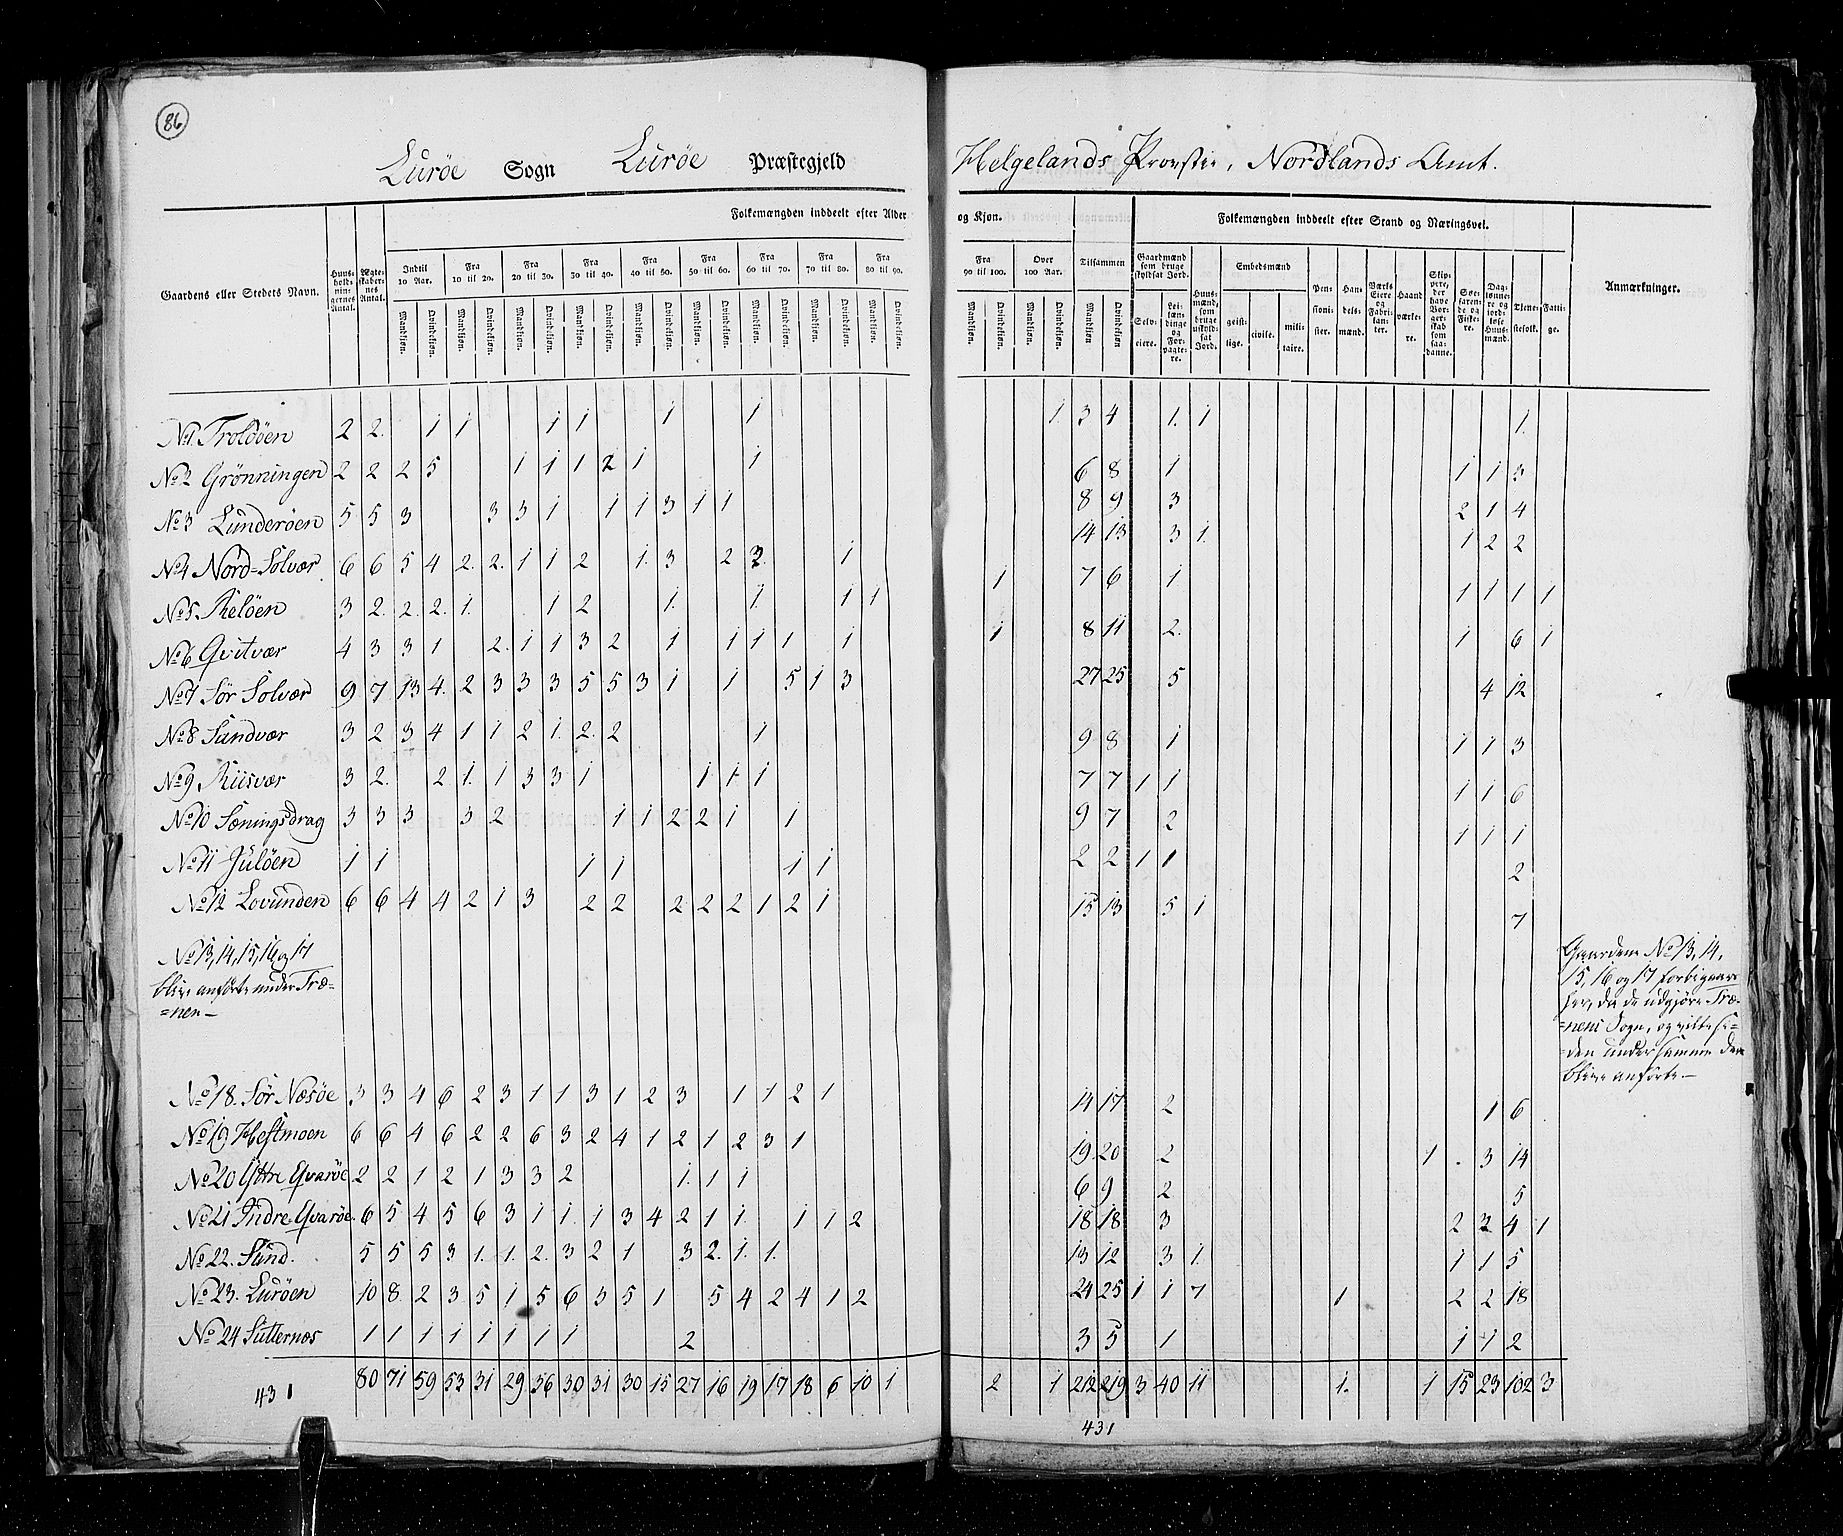 86
Lurøe Sogn Lurøe Præstegjeld Helgelands Provstie, Nordlands Amt.
Gaardens eller Stedets Navn.
Huusholdningernes Antal.
Ægteskabernes Antal.
Folkemængden inddeelt efter Alder og Kjøn.
Indtil 10 Aar.
Fra 10 til 20.
Fra 20 til 30.
Fra 30 til 40.
Fra 40 til 50.
Fra 50 til 60.
Fra 60 til 70.
Fra 70 til 80.
Fra 80 til 90.
Fra 90 til 100.
Over 100 Aar.
Tilsammen
Mandkjøn. Qvindekjøn.
Folkemængden inddeelt efter Stand og Næringsvei.
Gaardmænd som bruge skyldsat Jord.
Selveiere.
Leilændinge og Forpagtere.
Huusmænd, som bruge uskyldsat Jord.
Embedsmænd
geistlige.
civile.
militaire.
Pensionister.
Handelsmænd.
Værks Eiere og Fabrikanter.
Haandværkere.
Skippere, der have Borgerskab som saadanne.
Søefarende og Fiskere.
Daglønnere og jordløse Huusmænd.
Tjenestefolk.
Fattige.
Anmærkninger.
No 1 Troldöen 2 2 1 1 1 1 1 1 1 3 4 1 1 1
No 2 Grönningen 2 2 2 5 1 1 1 2 1 1 6 8 1 1 1 3
No 3 Lunderöen 5 5 3 3 3 1 1 1 3 1 1 8 9 3 2 1 4
No 4 Nord=Solvær 6 6 5 4 2 2 1 1 2 1 3 2 3 1 14 13 3 1 1 2 2
No 5 Reløen 3 2 2 2 1 1 2 1 1 1 1 1 7 6 1 1 1 1 1
No 6 Qvitvær 4 3 3 1 2 1 1 3 2 1 1 1 1 1 1 8 11 2 1 6 1
No 7 Sør Solvær 9 7 13 4 2 3 3 3 5 5 3 1 1 5 1 3 27 25 5 4 12
No 8 Sandvær 3 2 3 4 1 1 2 1 2 2 1 9 8 1 1 1 3
No 9 Riisvær 3 2 2 1 1 3 3 1 1 1 1 7 7 1 1 1 1 6
No 10 Sæningsdrag 3 3 3 3 2 1 1 2 2 1 1 9 7 2 1 1 1
No 11 Juløen 1 1 1 1 1 1 2 2 1 1 2
No 12 Lovunden 6 6 4 4 2 1 3 2 2 2 2 2 1 2 1 15 13 5 1 7
No 13, 14, 15, 16 og 17
blive anførte under Træ=
=nen —
Gaardene No 13, 14,
15, 16 og 17 forbigaaes
her, da de udgjøre Træ=
=nens Sogn, og ville si=
=den under samme Navn
blive anførte.—
No 18. Sør Næsöe 3 3 4 6 2 3 1 1 3 1 2 3 1 1 2 1 14 17 2 1 6
No 19 Hestmoen 6 6 4 6 2 2 6 3 2 4 1 2 1 2 3 1 19 20 2 1 3 14
No 20 Yttre Qvaröe 2 2 1 2 1 3 3 2 1 1 1 6 9 2 5
No 21 Indre Qvaröe 6 5 4 5 6 3 1 1 1 3 4 2 1 1 1 1 2 18 18 3 2 2 4 1
No 22. Sund. 5 5 5 3 1 1 2 3 2 1 3 2 1 1 13 12 3 1 1 1 5
No 23. Luröen 10 8 2 3 5 1 5 6 3 5 1 5 4 2 4 1 2 24 25 1 1 7 1 2 2 18
No 24 Sutternæs 1 1 1 1 1 1 1 1 2 3 5 1 1 1 2
431 80 71 59 53 31 29 36 30 31 30 15 27 16 19 17 18 6 10 1 2 1 212 219 3 40 11 1 1 15 23 102 3
431